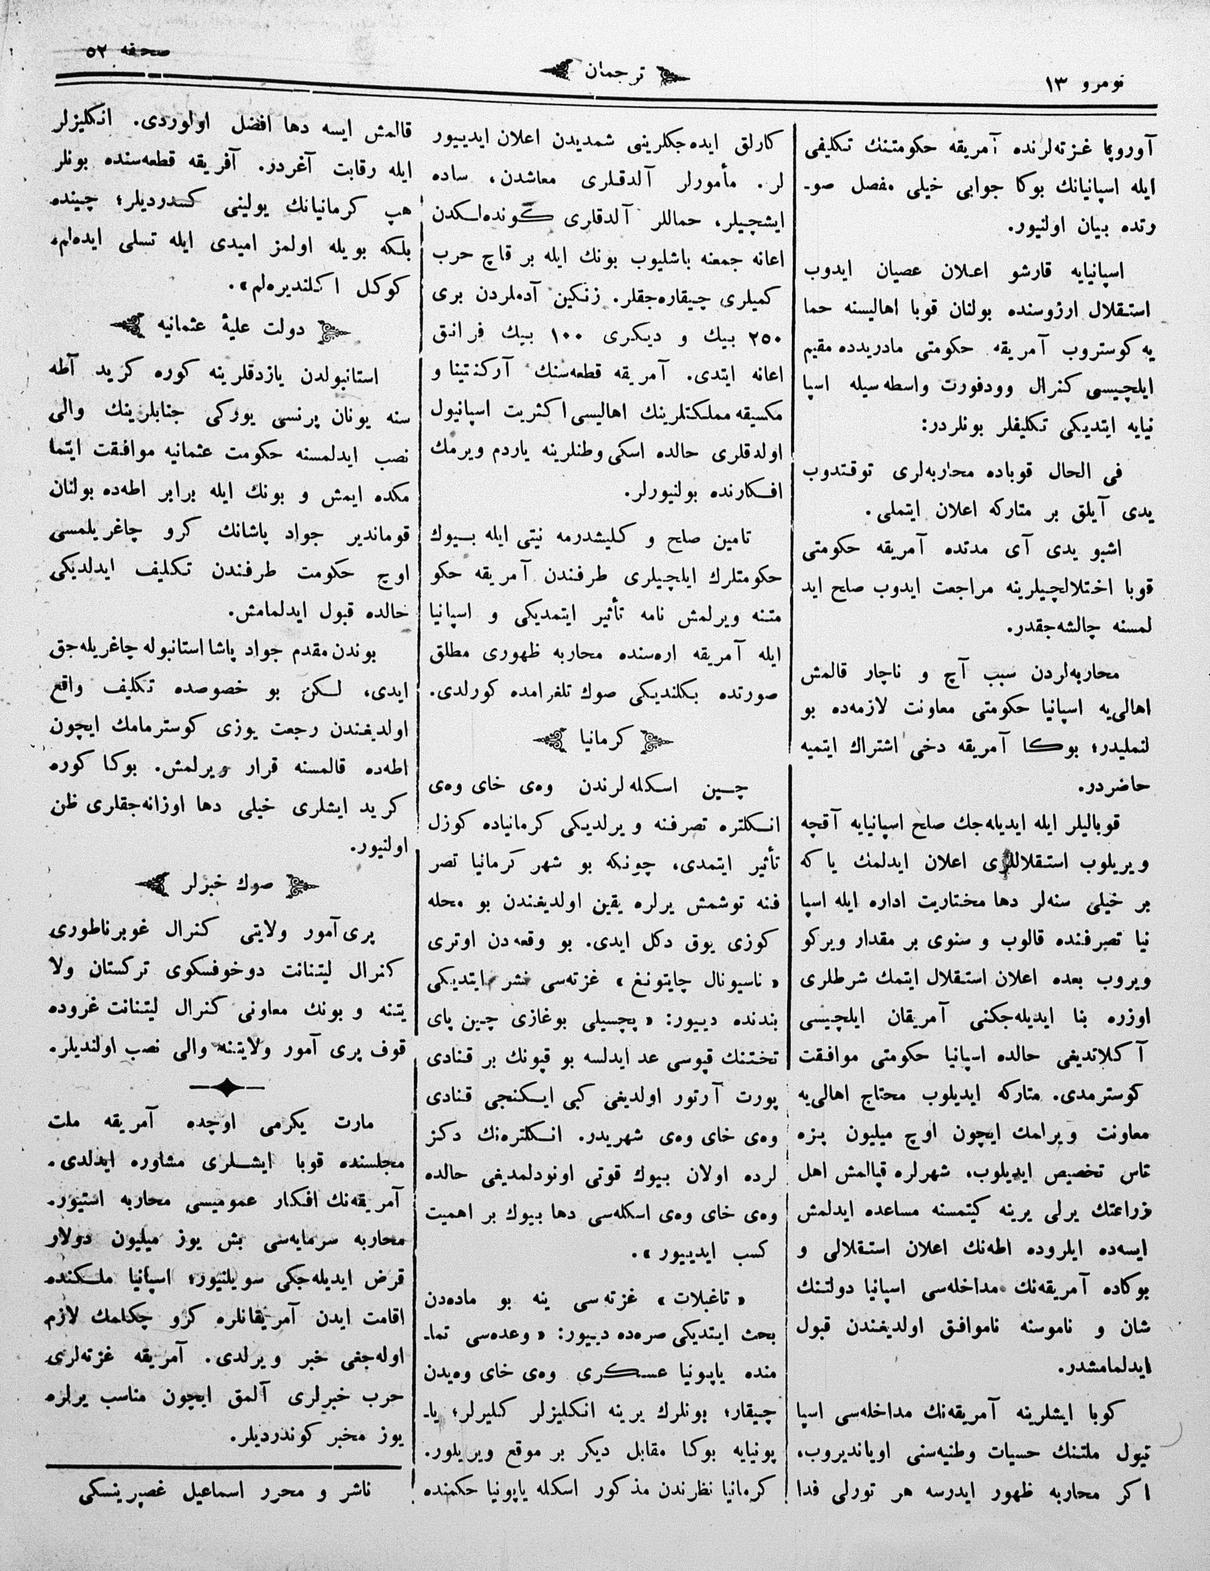 نومرو ١٣
ترجمان
صحفه ٥٢
آوروپا غزته‌لرنده آمریقه حكومتنك تكلیفی
ایله اسپانیانك بوكا جوابی خیلی مفصل صو-
رتده بیان اولنیور.
اسپانیایه قارشو اعلان عصیان ایدوب
استقلال ارزوسنده بولنان قوبا اهالیسنه حما
یه كوستروب آمریقه حكومتی مادریدده مقیم
ایلچیسی كنرال وودفورت واسطه‌سیله اسپا
نیایه ایتدیكی تكلیفلر بونلردر:
فی الحال قوباده محاربه‌لری توقتدوب
یدی آیلق بر متاركه اعلان ایتملی.
اشبو یدی آی مدتده آمریقه حكومتی
قوبا اختلالچیلرینه مراجعت ایدوب صلح اید
لمسنه چالشه‌جقدر.
محاربه‌لردن سبب آچ و ناچار قالمش
اهالی‌یه اسپانیا حكومتی معاونت لازمه‌ده بو
لنملیدر؛ بوكا آمریقه دخی اشتراك ایتمیه
حاضردر.
قوبالیلر ایله ایدیله‌جك صلح اسپانیایه آقچه
ویریلوب استقلاللری اعلان ایدلمك یا كه
بر خیلی سنه‌لر دها مختاریت اداره ایله اسپا
نیا تصرفنده قالوب و سنوی بر مقدار ویركو
ویروب بعده اعلان استقلال ایتمك شرطلری
اوزره بنا ایدیله‌جكنی آمریقان ایلچیسی
آكلاتدیغی حالده اسپانیا حكومتی موافقت
كوسترمدی. متاركه ایدیلوب محتاج اهالی‌یه
معاونت ویرامك ایچون اوچ میلیون پزه
تاس تخصیص ایدیلوب، شهرلره قپالمش اهل
زراعتك یرلی یرینه كیتمسنه مساعده ایدلمش
ایسه‌ده ایلروده اطه‌نك اعلان استقلالی و
بوكاده آمریقه‌نك مداخله‌سی اسپانیا دولتنك
شان و ناموسنه ناموافق اولدیغندن قبول
ایدلمامشدر.
كوبا ایشلرینه آمریقه‌نك مداخله‌سی اسپا
نیول ملتنك حسیات وطنیه‌سنی اویاندیروب،
اكر محاربه ظهور ایدرسه هر تورلی فدا
كارلق ایده‌جكلرینی شمدیدن اعلان ایدییور
لر. مأمورلر آلدقلری معاشدن، ساده
ایشچیلر، حماللر آلدقلری كونده‌لكدن
اعانه جمعنه باشلیوب بونك ایله بر قاچ حرب
كمیلری چیقاره‌جقلر. زنكین آدملردن بری
٢٥٠ بیك و دیكری ١٠٠ بیك فرانق
اعانه ایتدی. آمریقه قطعه‌سنك آركنتینا و
مكسیقه مملكتلرینك اهالیسی اكثریت اسپانیول
اولدقلری حالده اسكی وطنلرینه یاردم ویرمك
افكارنده بولنیورلر.
تامین صلح و كلیشدرمه نیتی ایله بیوك
حكومتلرك ایلچیلری طرفندن آمریقه حكو
متنه ویرلمش نامه تأثیر ایتمدیكی و اسپانیا
ایله آمریقه اره‌سنده محاربه ظهوری مطلق
صورتده بكلندیكی صوك تلغرامده كورلدی.
كرمانیا
چین اسكله‌لرندن وه‌ی خای وه‌ی
انكلتره تصرفنه ویرلدیكی كرمانیاده كوزل
تأثیر ایتمدی، چونكه بو شهر كرمانیا تصر
فنه توشمش یرلره یقین اولدیغندن بو محله
كوزی یوق دكل ایدی. بو وقعه‌دن اوتری
« ناسیونال چایتونغ » غزته‌سی نشر ایتدیكی
بندنده دییور: « پچسیلی بوغازی چین پای
تختنك قپوسی عد ایدلسه بو قپونك بر قنادی
پورت آرتور اولدیغی كبی ایكنجی قنادی
وه‌ی خای وه‌ی شهریدر. انكلتره‌نك دكز
لرده اولان بیوك قوتی اونودلمدیغی حالده
وه‌ی خای وه‌ی اسكله‌سی دها بیوك بر اهمیت
كسب ایدییور ».
« تاغبلات » غزته‌سی ینه بو ماده‌دن
بحث ایتدیكی صره‌ده دییور: « وعده‌سی تما-
منده یاپونیا عسكری وه‌ی خای وه‌یدن
چیقار؛ بونلرك یرینه انكلیزلر كلیرلر؛ یا-
پونیایه بوكا مقابل دیكر بر موقع ویریلور.
كرمانیا نظرندن مذكور اسكله یاپونیا حكمنده
قالمش ایسه دها افضل اولوردی. انكلیزلر
ایله رقابت آغردر. آفریقه قطعه‌سنده بونلر
هپ كرمانیانك یولینی كسدردیلر؛ چینده
بلكه بویله اولمز امیدی ایله تسلی ایده‌لم،
كوكل اكلندیره‌لم».
دولت علیهٔ عثمانیه
استانبولدن یازدقلرینه كوره كرید آطه
سنه یونان پرنسی یوركی جنابلرینك والی
نصب ایدلمسنه حكومت عثمانیه موافقت ایتما
مكده ایمش و بونك ایله برابر اطه‌ده بولنان
قوماندیر جواد پاشانك كرو چاغریلمسی
اوچ حكومت طرفندن تكلیف ایدلدیكی
حالده قبول ایدلمامش.
بوندن مقدم جواد پاشا استانبوله چاغریله‌جق
ایدی، لكن بو خصوصده تكلیف واقع
اولدیغندن رجعت یوزی كوسترمامك ایچون
اطه‌ده قالمسنه قرار ویرلمش. بوكا كوره
كرید ایشلری خیلی دها اوزانه‌جقلری ظن
اولنیور.
صوك خبرلر
پری آمور ولایتی كنرال غوبرناطوری
كنرال لیتنانت دوخوفسكوی تركستان ولا
یتنه و بونك معاونی كنرال لیتنانت غروده
قوف پری آمور ولایتنه والی نصب اولندیلر.
مارت یكرمی اوچده آمریقه ملت
مجلسنده قوبا ایشلری مشاوره ایدلدی.
آمریقه‌نك افكار عمومیسی محاربه استیور.
محاربه سرمایه‌سی بش یوز میلیون دولار
قرض ایدیله‌جكی سویلنیور؛ اسپانیا ملكنده
اقامت ایدن آمریقانلره كرو چكلمك لازم
اوله‌جغی خبر ویرلدی. آمریقه غزته‌لری
حرب خبرلری آلمق ایچون مناسب یرلره
یوز مخبر كوندردیلر.
ناشر و محرر اسماعیل غصپرینسكی